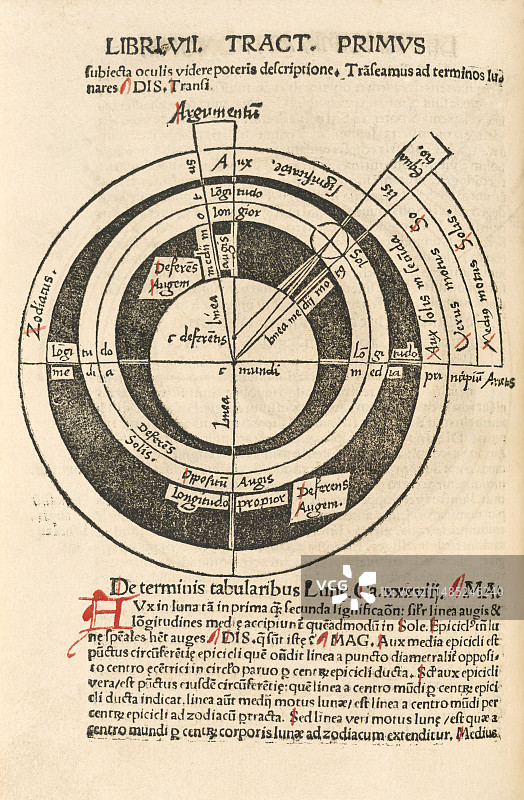 LIBRI. VII. TRACT. PRIMVS
subiecta oculis videre poteris descriptione. Trãseamus ad terminos lu
nares DIS. Transi.
Argumentũ
Aux significatõe.
Longi tudo
lon gior
medii mo t us
augis
Deferẽs Augem
linea
c deferẽtis
linea me dii mo
Zodiacus.
equa tio.
so lis
Aux solis in secũda
Verus motus Solis.
Medius motus Solis.
lõgi tu do
lõ gi tudo
me di a
c mundi
med ia
pri ncipiũ Arietis
linea
Deferẽs Solis.
Opposituũ Augis
Longitudo propior
Deferens Augem.
VCG
De terminis tabularibus Lune. Ca. xxxviij. MA.
AVx in luna tã in prima q̃ secunda significaõn: sil'r linea augis &
lõgitudines medię accipiunt̃ quẽadmodũ in Sole. Epicicl'i in lu
nę spẽales hẽt auges DIS. q̃ sũt istę MAG. Aux media epicicli est
pũctus circũferẽtię epicicli quẽ oñdit linea a puncto diametralit̃ opposi
to centro ecẽtrici in circl'o paruo p centrũ epicicli ducta. Sed aux epicicli
vera/est pũctus eiusdẽ circũferẽtię: quẽ linea a centro mũdi p centrũ epici
cli ducta indicat. linea aũt medii motus lunæ/ est linea a centro mũdi per
centrũ epicicli ad zodiacũ ptracta. Sed linea veri motus lunę/est quæ a
centro mundi p centrũ corporis lunæ ad zodiacum extenditur. Medius